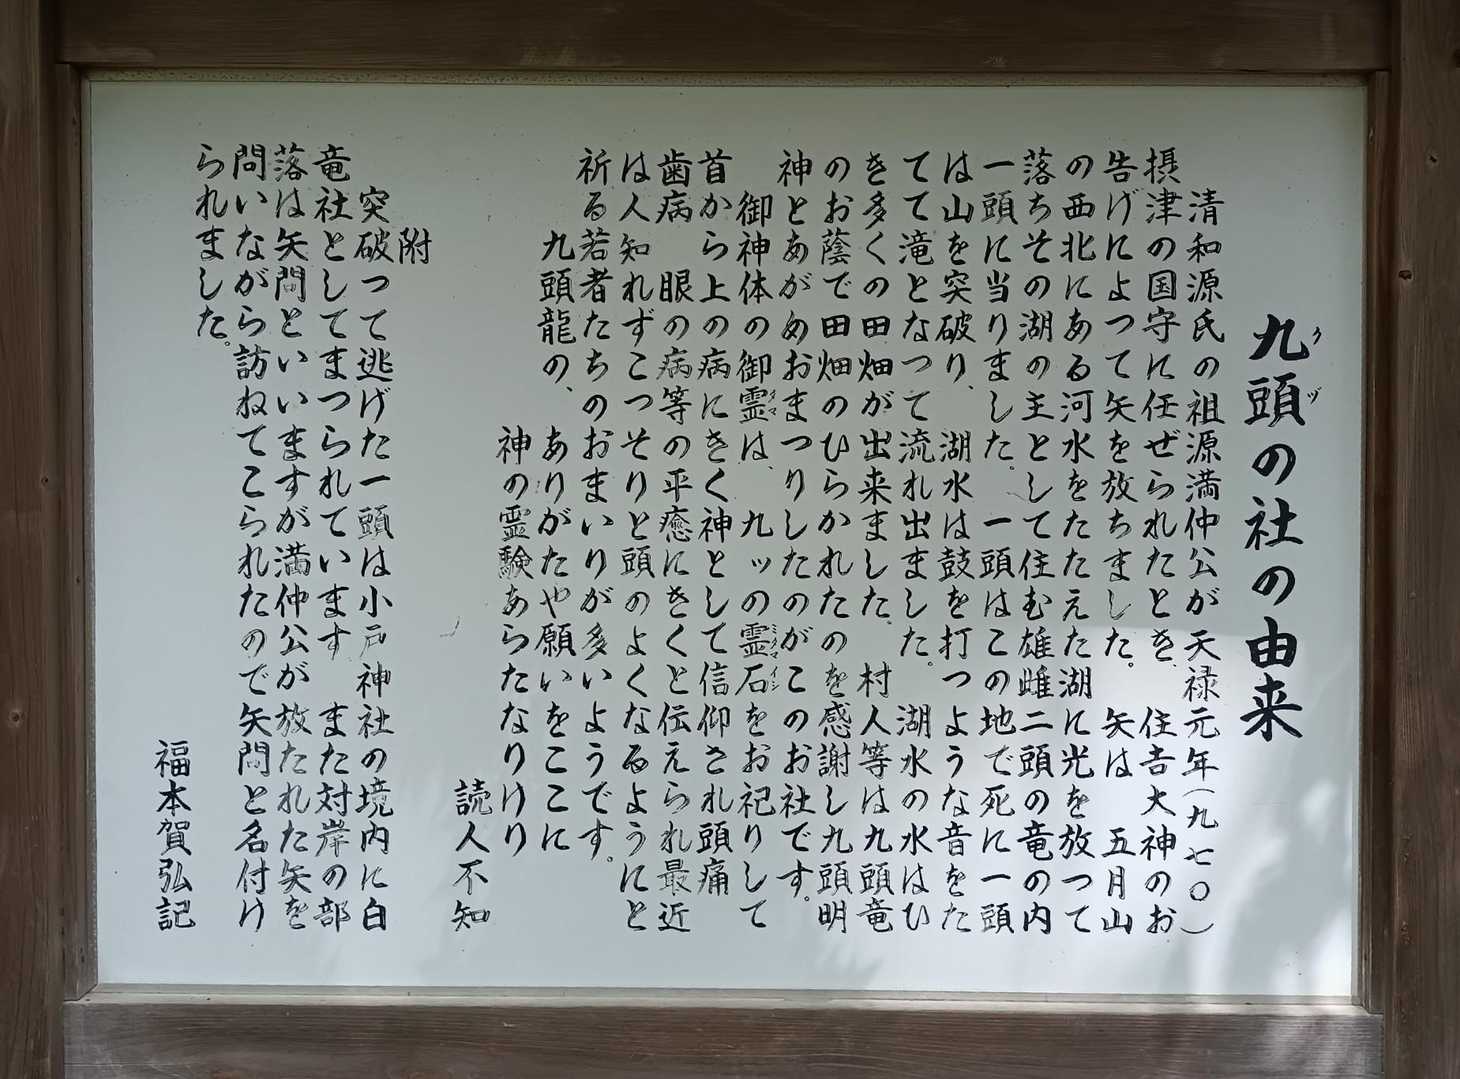 九頭の社の由来
クヅ
清和源氏の祖源満仲公が天禄元年(九七〇)
摂津の国守に任ぜられたとき、住吉大神のお
告げによって矢を放ちました。矢は五月山
の西北にある河水をたたえた湖に光を放って
落ちその湖の主として住む雄雌二頭の竜の内
一頭に当りました。一頭はこの地で死に一頭
は山を突破り、湖水は鼓を打つような音をた
てて滝となつて流れ出ました。湖水の水はひ
き多くの田畑が出来ました。村人等は九頭竜
のお蔭で田畑のひらかれたのを感謝し九頭明
神とあがめおまつりしたのがこのお社です。
御神体の御霊は、九ッの霊石をお祀りして
タマ
ミタマイシ
首から上の病にきく神として信仰され頭痛
歯病 眼の病等の平癒にきくと伝えられ最近
は人知れずこつそりと頭のよくなるようにと
祈る若者たちのおまいりが多いようです。
九頭龍の、ありがたや願いをここに
神の霊験あらたなりけり
読人不知
附
突破つて逃げた一頭は小戸神社の境内に白
竜社としてまつられています また対岸の部
落は矢問といいますが満仲公が放たれた矢を
問いながら訪ねてこられたので矢問と名付け
られました。
福本賀弘記